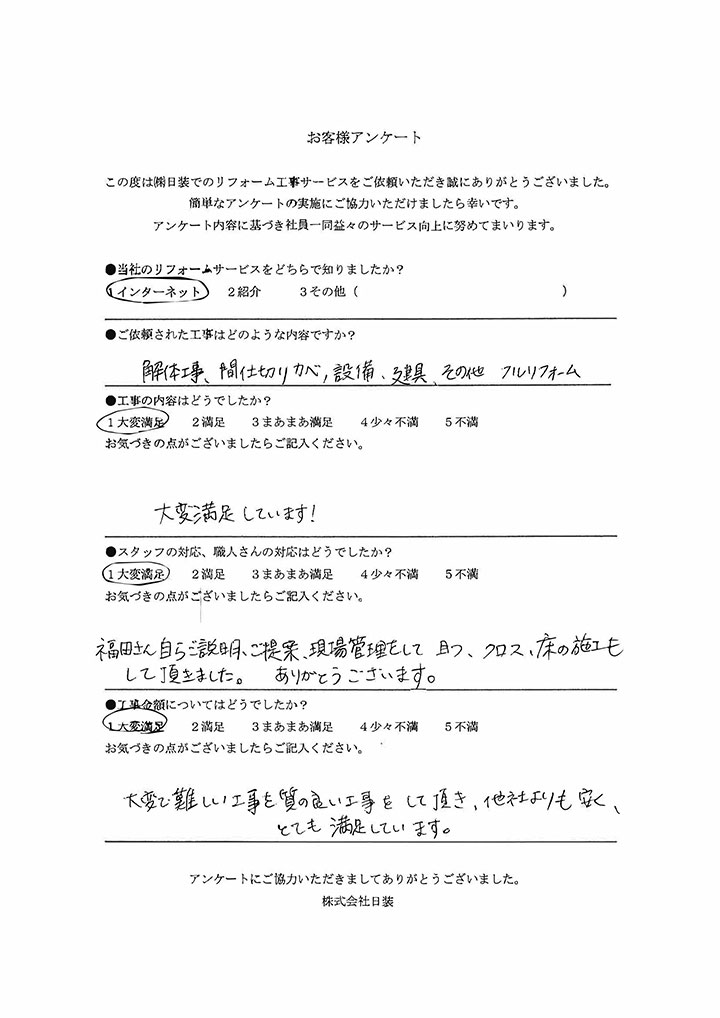 お客様アンケート
この度は㈱日装でのリフォーム工事サービスをご依頼いただき誠にありがとうございました。
簡単なアンケートの実施にご協力いただけましたら幸いです。
アンケート内容に基づき社員一同益々のサービス向上に努めてまいります。
●当社のリフォームサービスをどちらで知りましたか？
1インターネット 2紹介 3その他（ ）
●ご依頼された工事はどのような内容ですか？
解体工事、間仕切りカベ，設備、建具、その他 フルリフォーム
●工事の内容はどうでしたか？
1大変満足 2満足 3まあまあ満足 4少々不満 5不満
お気づきの点がございましたらご記入ください。
大変満足しています！
●スタッフの対応、職人さんの対応はどうでしたか？
1大変満足 2満足 3まあまあ満足 4少々不満 5不満
お気づきの点がございましたらご記入ください。
福田さん自らご説明、ご提案、現場管理をして 且つ、クロス、床の施工も
して頂きました。 ありがとうございます。
●工事金額についてはどうでしたか？
1大変満足 2満足 3まあまあ満足 4少々不満 5不満
お気づきの点がございましたらご記入ください。
大変で難しい工事を質の良い工事をして頂き、他社よりも安く、
とても満足しています。
アンケートにご協力いただきましてありがとうございました。
株式会社日装